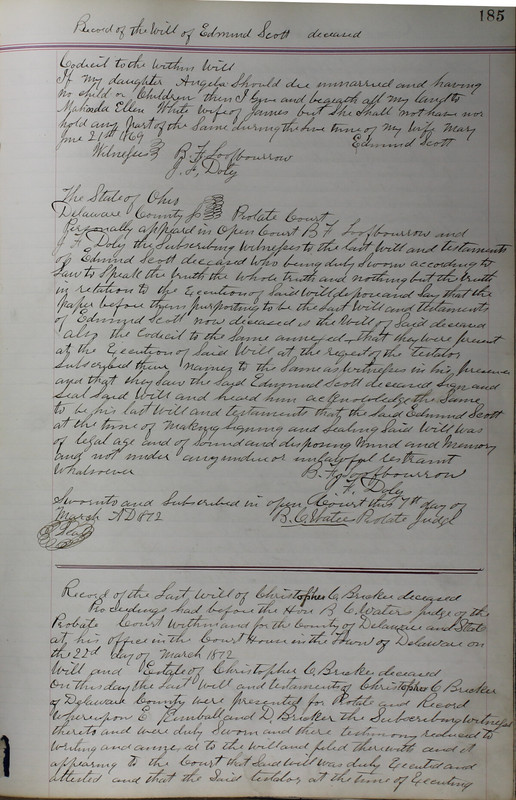 185
Record of the Will of Edmund Scott deceased
Codicil to the within Will
If my daughter Angela Should die unmarried and having
no child or Children then I give and bequeath all my land to
Mahinda Ellen White wife of James but She Shall not have nor
hold any part of the Same during the live time of my Wife Mary
June 21st 1869 Edmund Scott
Witnesses B. F. Loofbourrow
J. F. Doty
The State of Ohio
Delaware County Ss Probate Court
Personally appeared in Open Court B. F. Loofbourrow and
J F Doty the Subscribing Witnesses to the last Will and testaments
of Edmund Scott deceased who being duly Sworn according to
Law to Speak the truth the whole truth and nothing but the truth
in relation to the Execution of Said Will depose and Say that the
Paper before them purporting to be the last Will and testaments
of Edmund Scott now deceased is the Will of Said deceased
also the Codicil to the Same annexed, that they were present
at the Execution of Said Will at the request of the testator
Subscribed their names to the Same as Witnesses in his presence
and that they Saw the Said Edmund Scott deceased Sign and
Seal Said Will and heard him acknowledge the Same
to be his last Will and testaments that the Said Edmund Scott
at the time of Making Signing and Sealing Said Will was
of legal age and of Sound and disposing Mind and Memory
and not under any undue or unlawful restraint
Whatsoever B. F. Loofbourrow
J. F. Doty
Sworn to and Subscribed in open Court this 7th day of
March AD 1872 B. C. Waters Probate Judge
Seal
Record of the Last Will of Christopher C Bricker deceased
Proceedings had before the Hon B. C. Waters Judge of the
Probate Court within and for the County of Delaware and State
at his office in the Court House in the Town of Delaware on
the 22d day of March 1872
Will and Estate of Christopher C. Bricker deceased
On this day the Last Will and testament of Christopher C Bricker
of Delaware County were presented for Probate and Record
Whereupon E Kimball and D. Bricker the Subscribing witnesses
thereto and were duly Sworn and there testimony reduced to
writing and annexed to the will and filed therewith and it
appearing to the Court that Said Will was duly Executed and
attested and that the Said testator at the time of Executing